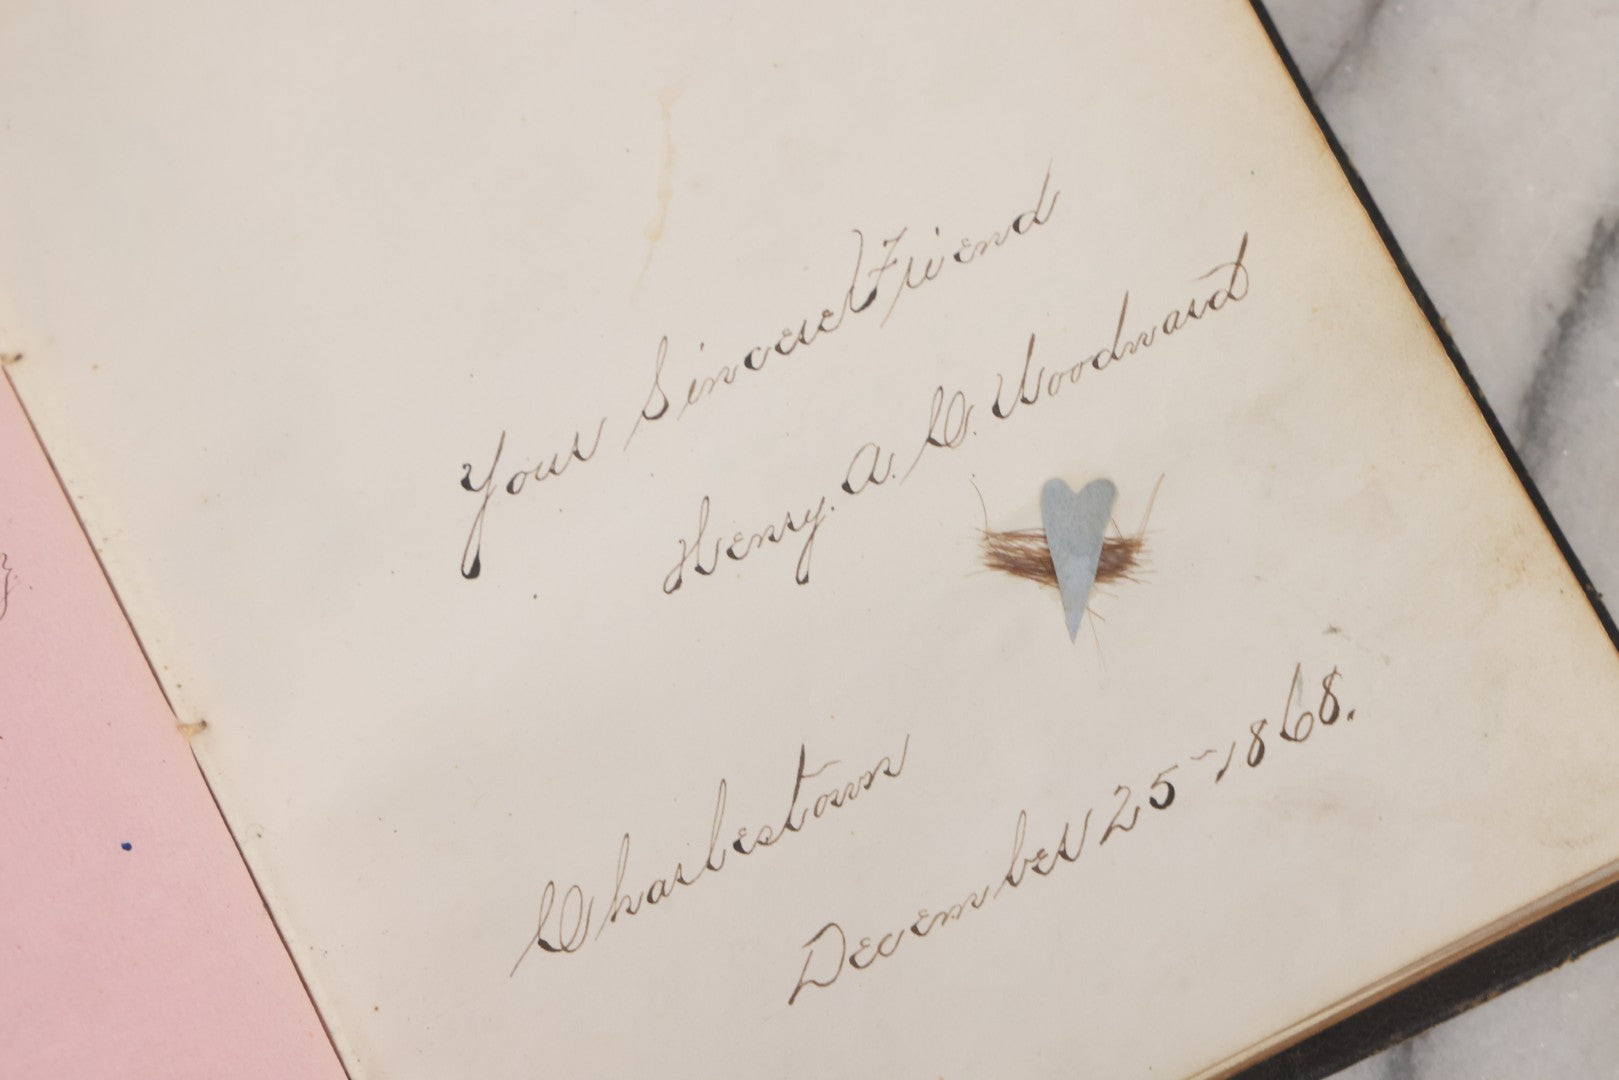 Your Sincere Friend
Henry. A. C. Woodward
Charlestown
December 25-1868.